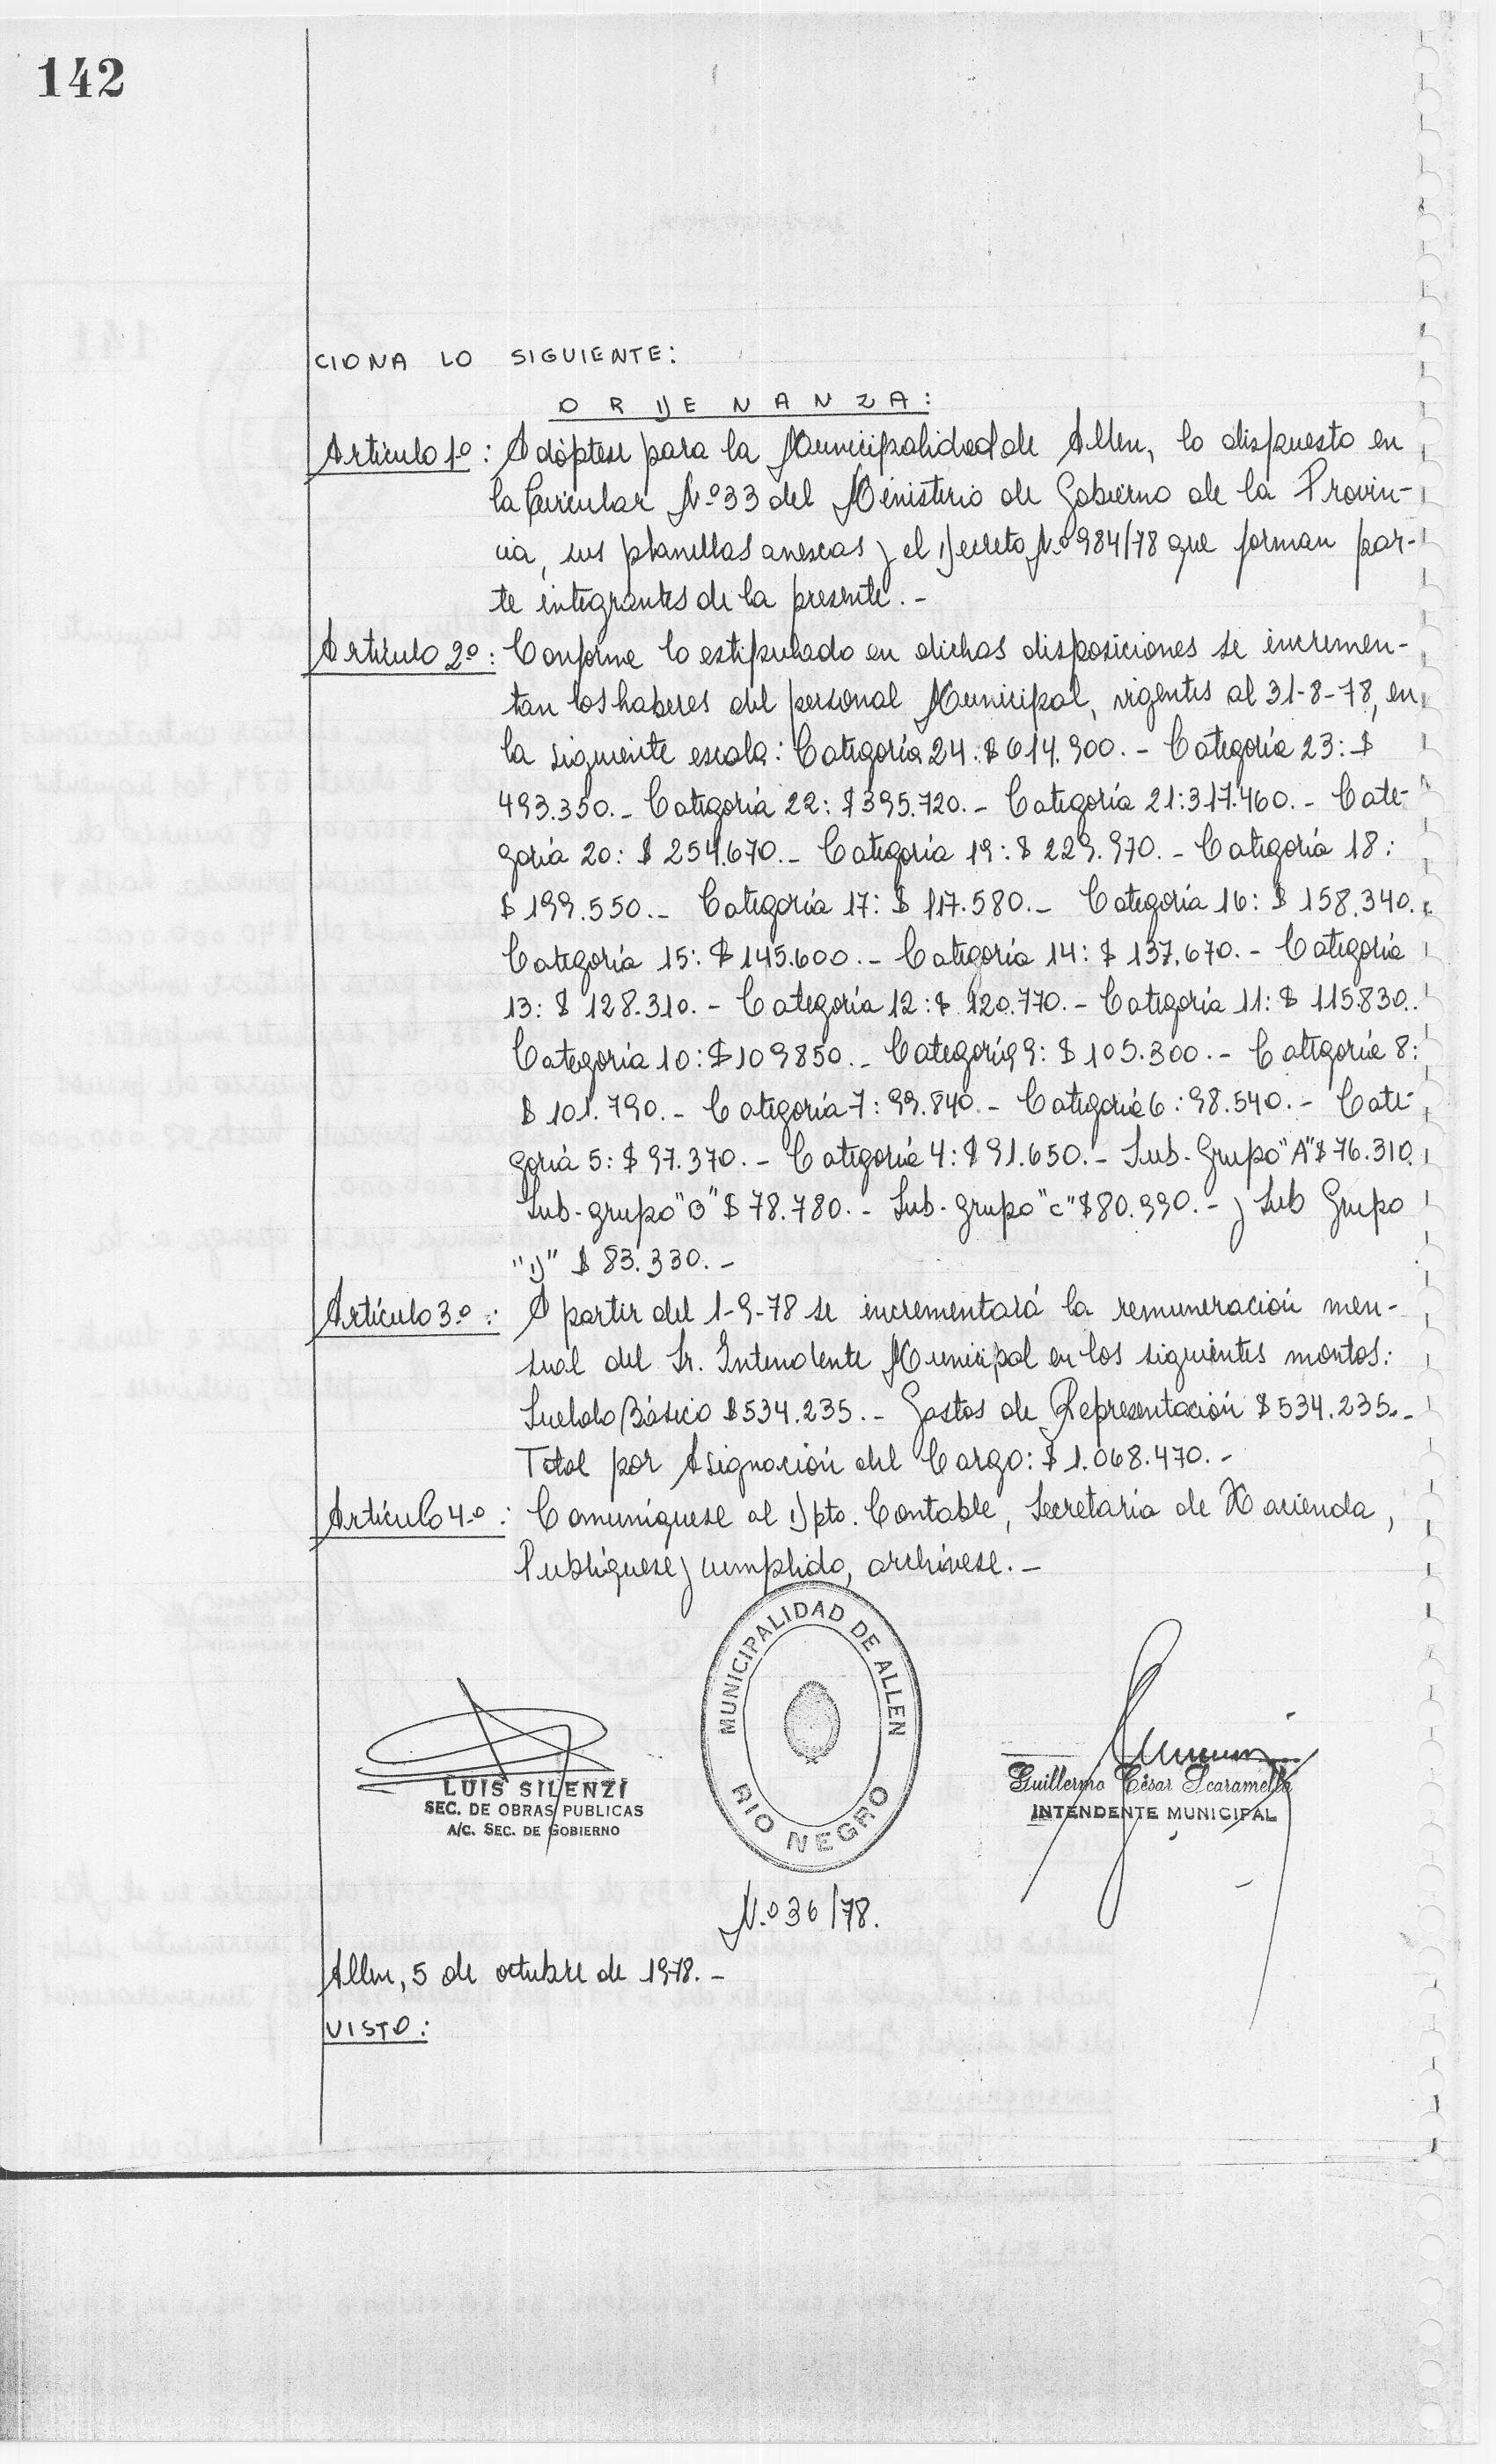 142
CIONA LO SIGUIENTE:
ORDENANZA:
Artículo 1º: Adóptese para la Municipalidad de Allen, lo dispuesto en
la Circular Nº 33 del Ministerio de Gobierno de la Provin-
cia, sus planillas anexas y el Decreto Nº 984/78 que forman par-
te integrantes de la presente.-
Artículo 2º: Conforme lo estipulado en dichas disposiciones se incremen-
tan los haberes del personal Municipal, vigentes al 31-8-78, en
la siguiente escala: Categoría 24: $ 614.900.- Categoría 23: $
493.350.- Categoría 22: $ 395.720.- Categoría 21: 317.460.- Cate-
goría 20: $ 254.670.- Categoría 19: $ 229.970.- Categoría 18:
$ 199.550.- Categoría 17: $ 117.580.- Categoría 16: $ 158.340.-
Categoría 15: $ 145.600.- Categoría 14: $ 137.670.- Categoría
13: $ 128.310.- Categoría 12: $ 120.770.- Categoría 11: $ 115.830.-
Categoría 10: $ 109850.- Categoría 9: $ 105.300.- Categoría 8:
$ 101.790.- Categoría 7: 99.840.- Categoría 6: 98.540.- Cate-
goría 5: $ 97.370.- Categoría 4: $ 91.650.- Sub-Grupo "A" $ 76.310.
Sub-grupo "B" $ 78.780.- Sub-grupo "C" $ 80.990.- y Sub Grupo
"D" $ 83.330.-
Artículo 3º: A partir del 1-9-78 se incrementará la remuneración men-
sual del Sr. Intendente Municipal en los siguientes montos:
Sueldo Básico $ 534.235.- Gastos de Representación $ 534.235.-
Total por Asignación del Cargo: $ 1.068.470.-
Artículo 4º: Comuníquese al Dpto. Contable, Secretaría de Hacienda,
Publíquese y cumplido, archívese.-
MUNICIPALIDAD DE ALLEN
RIO NEGRO
LUIS SILENZI
SEC. DE OBRAS PUBLICAS
A/C. SEC. DE GOBIERNO
Guillermo César Scaramella
INTENDENTE MUNICIPAL
Nº 36/78.
Allen, 5 de octubre de 1978.-
VISTO: